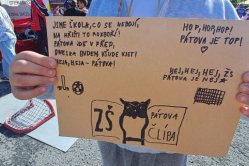 JSME ŠKOLA, CO SE NEBOJÍ,
NA HŘIŠTI TO ROZBOJÍ!
PÁTOVA JDE V PŘED,
DNESKA BUDEM VŠUDE HJET!
HEJA, HEJA - PÁTOVA!
HOP, HOP, HOP!
PÁTOVA JE TOP!
HEJ, HEJ, HEJ, ZŠ
PÁTOVA JE NEJ
ZŠ
PÁTOVA
Č.LÍPA